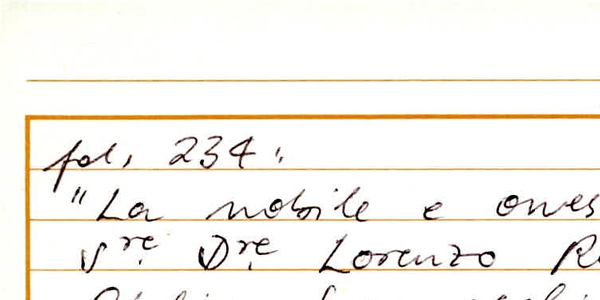 fol. 234:
"La nobile e ones
Sre. Dre. Lorenzo R